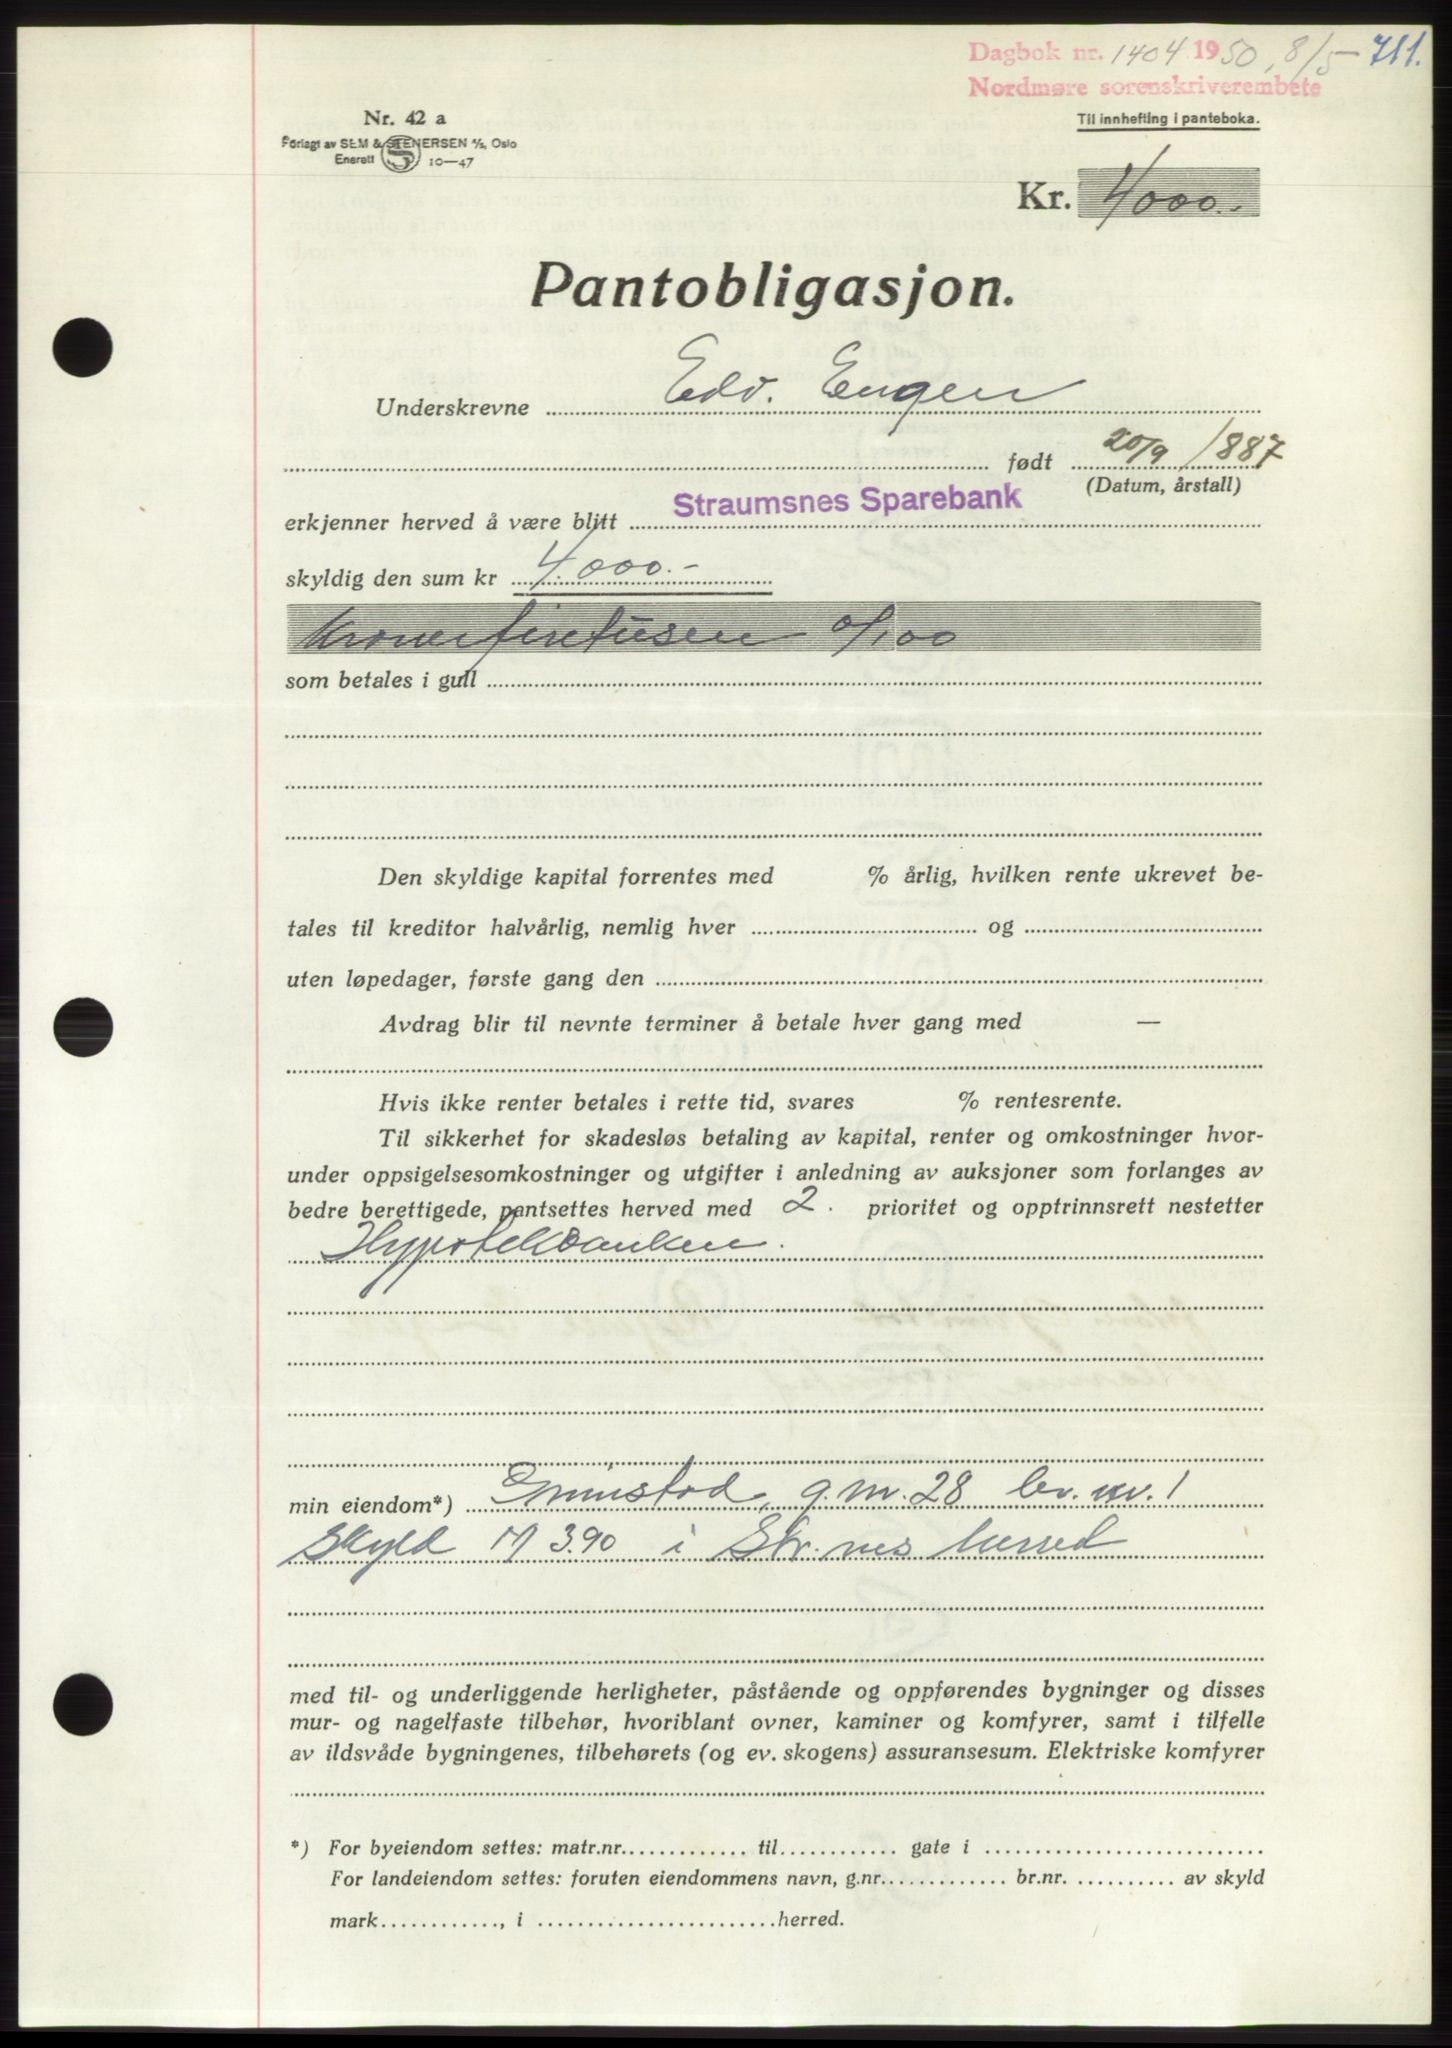 Dagbok nr. 1404 1950, 8/5 - 711.
Nordmøre sorenskriverembete
Nr. 42 a
Til innhefting i panteboka.
Forlagt av SEM & STENERSEN A/S, Oslo
Enerett 10—47
Kr. 4000.-
Pantobligasjon.
Underskrevne Edv. Engen
født 20/9 1887
(Datum, årstall)
erkjenner herved å være blitt Straumsnes Sparebank
skyldig den sum kr 4000.-
Kroner firetusen 0/100
som betales i gull
Den skyldige kapital forrentes med % årlig, hvilken rente ukrevet be-
tales til kreditor halvårlig, nemlig hver og
uten løpedager, første gang den
Avdrag blir til nevnte terminer å betale hver gang med —
Hvis ikke renter betales i rette tid, svares % rentesrente.
Til sikkerhet for skadesløs betaling av kapital, renter og omkostninger hvor-
under oppsigelsesomkostninger og utgifter i anledning av auksjoner som forlanges av
bedre berettigede, pantsettes herved med 2. prioritet og opptrinnsrett nestetter
Hypotekbanken.
min eiendom*) Grimstad, g.nr. 28 br. nr. 1
Skyld M 3.90 i Str.nes herred
med til- og underliggende herligheter, påstående og oppførendes bygninger og disses
mur- og nagelfaste tilbehør, hvoriblant ovner, kaminer og komfyrer, samt i tilfelle
av ildsvåde bygningenes, tilbehørets (og ev. skogens) assuransesum. Elektriske komfyrer
*) For byeiendom settes: matr.nr. til gate i
For landeiendom settes: foruten eiendommens navn, g.nr. br.nr. av skyld
mark, i herred.